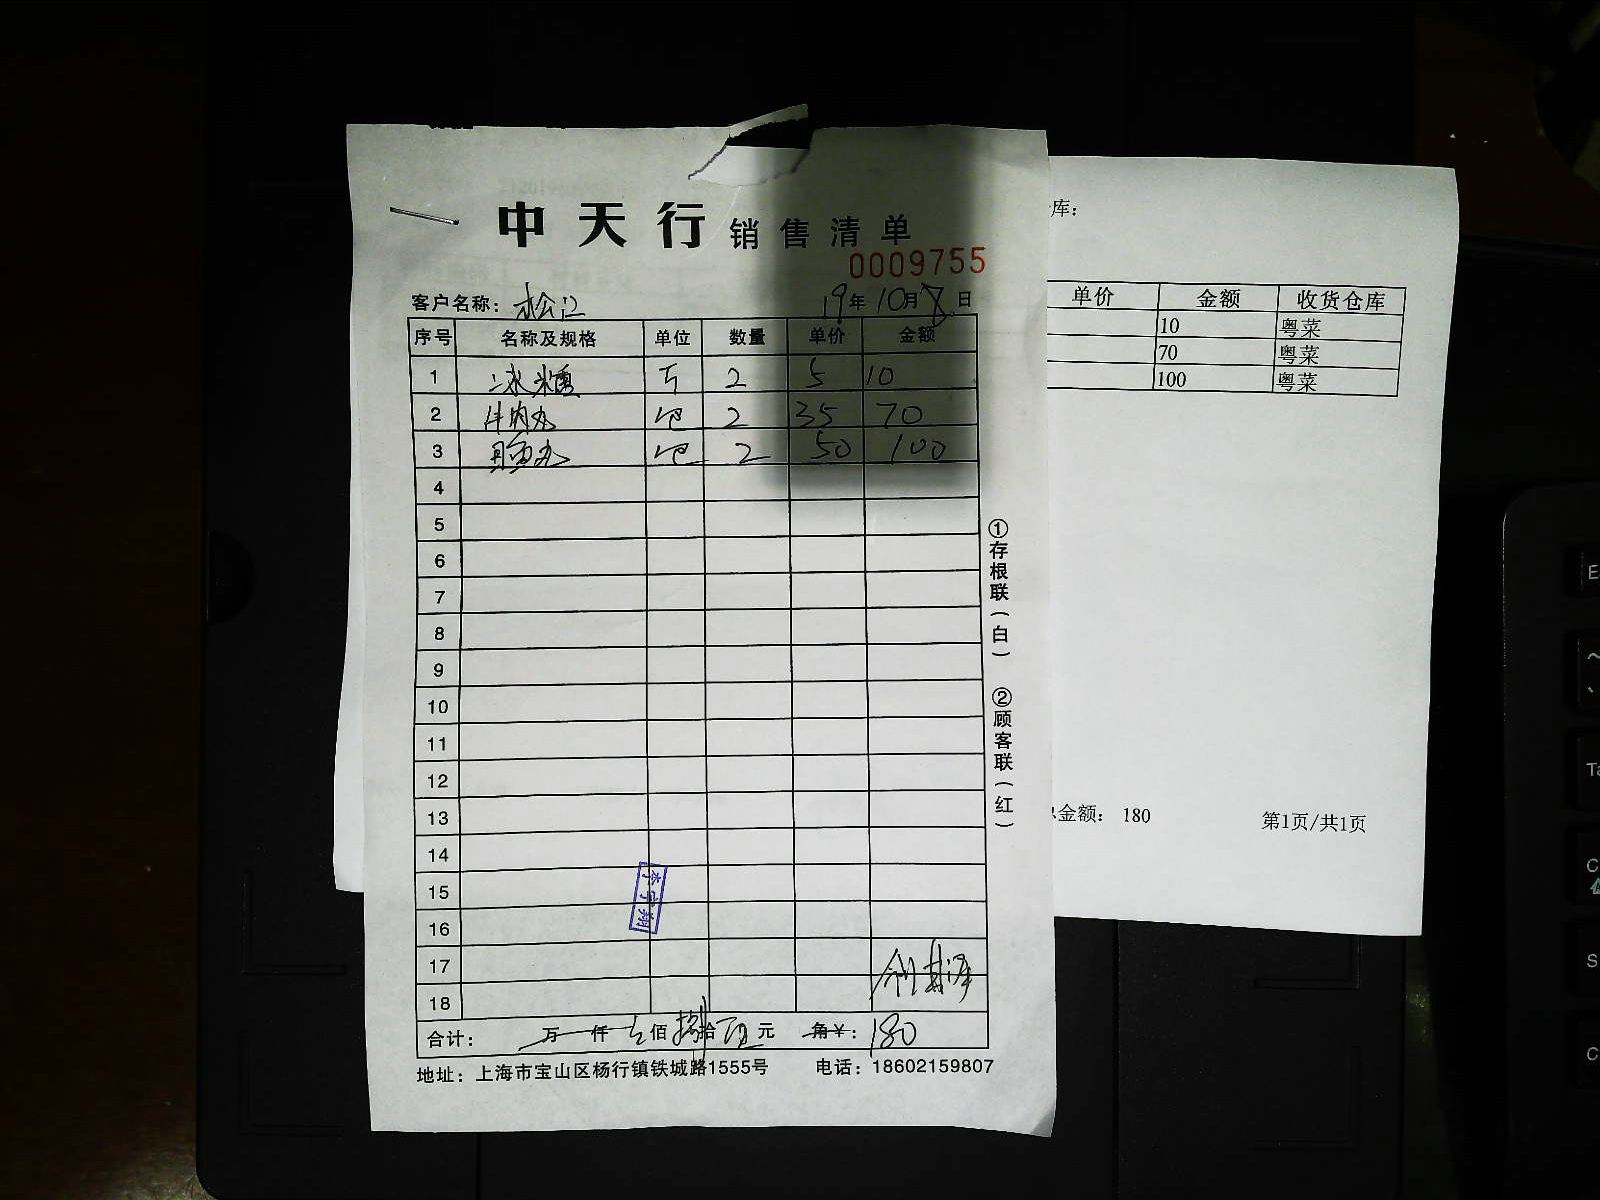 中天行 销售清单
0009755
客户名称： 松江 19年10月8日
序号 名称及规格 单位 数量 单价 金额
1 冰糖 2 5 10
2 牛肉 包 2 35 70
3 包 2 50 100
4
5
6
7
8
9
10
11
12
13
14
15
16
17
18
合计： 万 仟 佰 捌拾 元 角￥： 180
地址：上海市宝山区杨行镇铁城路1555号 电话：18602159807
①存根联（白） ②顾客联（红）
库：
单价 金额 收货仓库
10 粤菜
70 粤菜
100 粤菜
总金额： 180 第1页/共1页